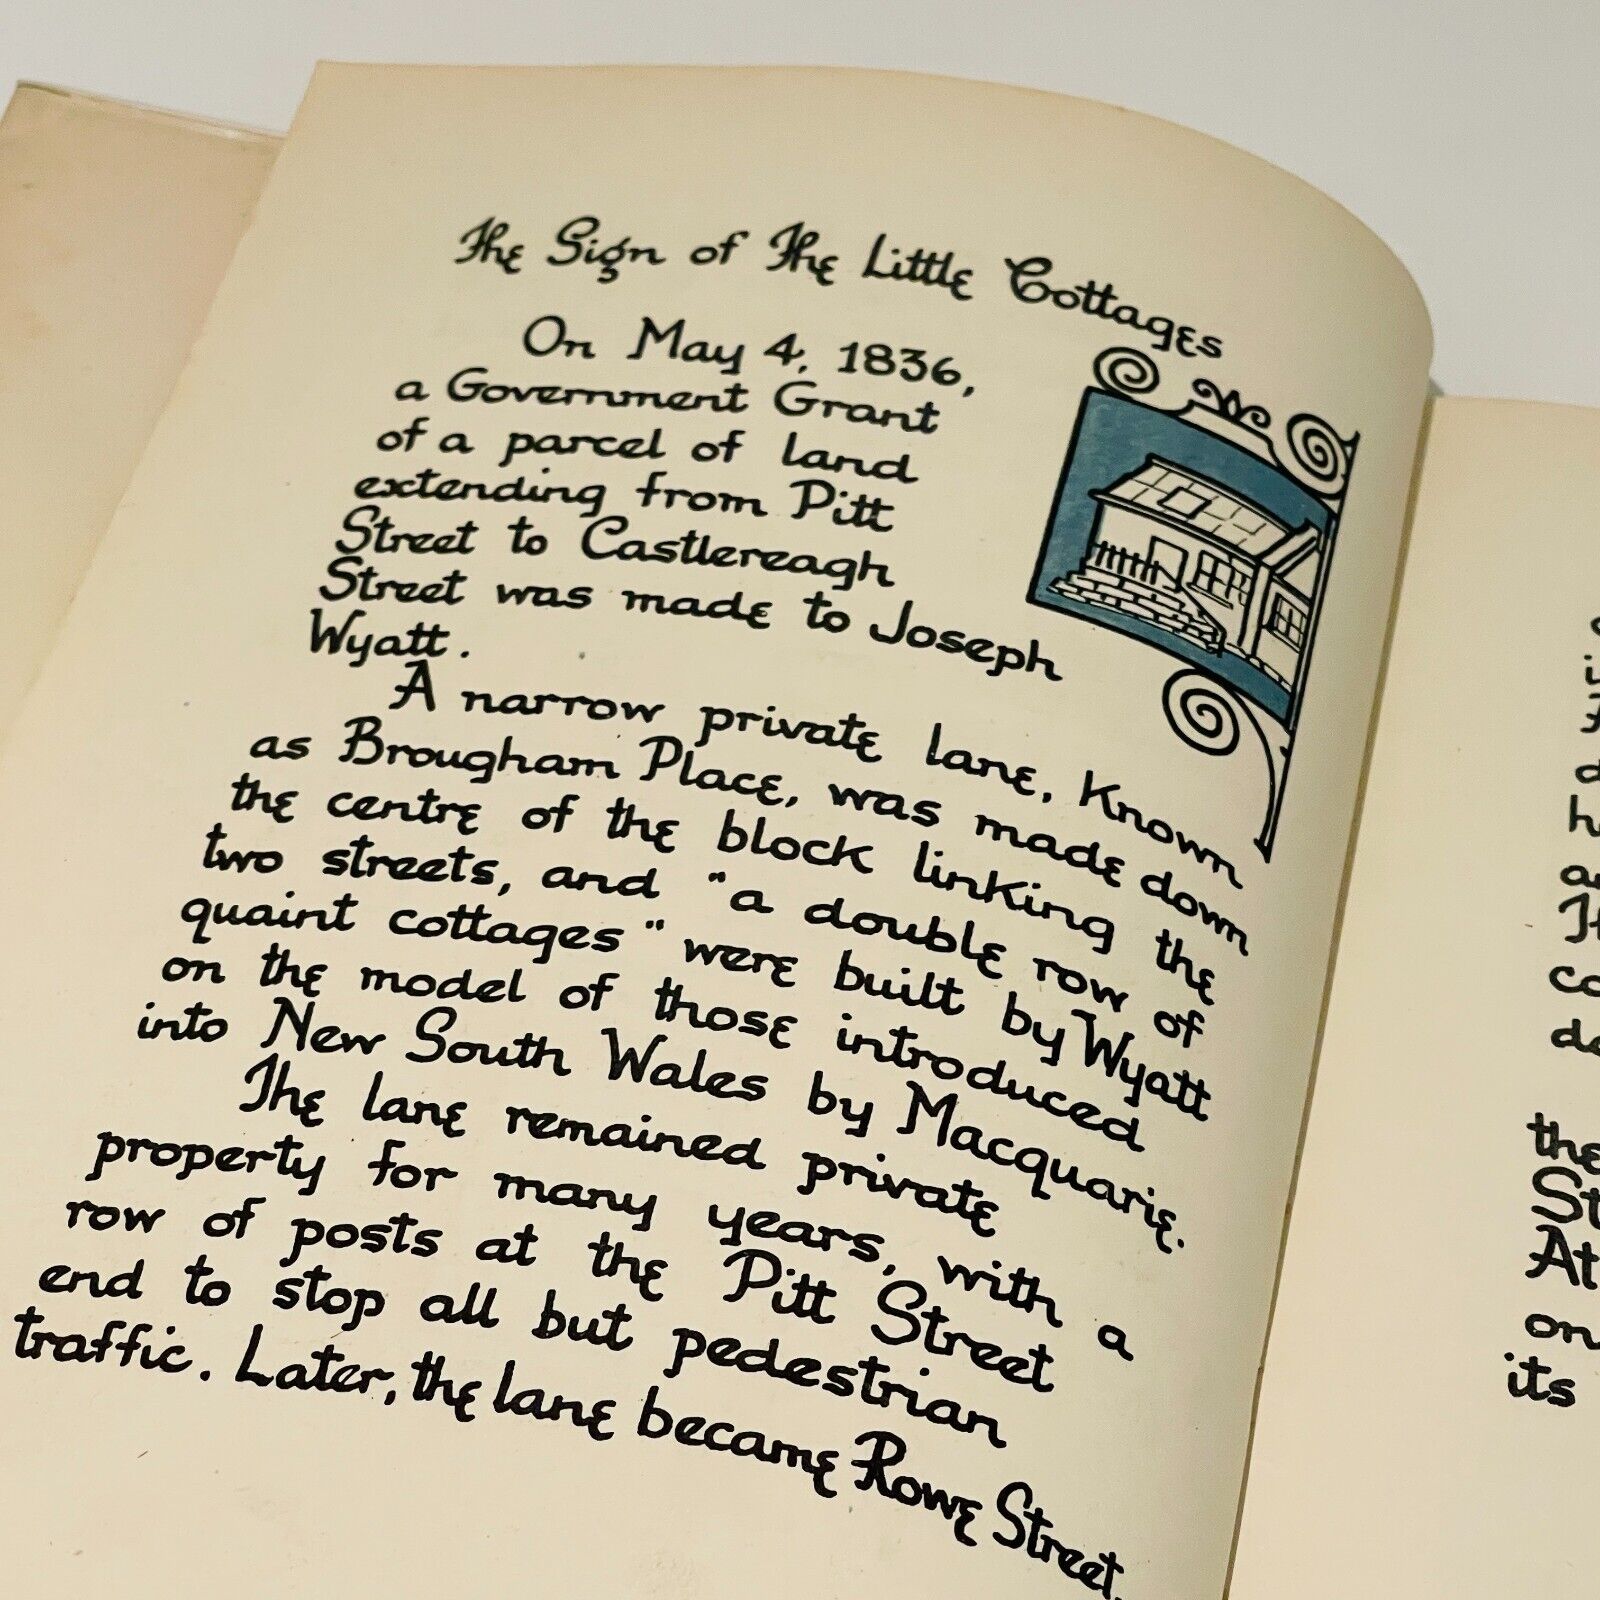 The Sign of The Little Cottages
On May 4, 1836,
a Government Grant
of a parcel of land
extending from Pitt
Street to Castlereagh
Street was made to Joseph
Wyatt.
A narrow private lane, known
as Brougham Place, was made down
the centre of the block linking the
two streets, and "a double row of
quaint cottages" were built by Wyatt
on the model of those introduced
into New South Wales by Macquarie.
The lane remained private
property for many years, with a
row of posts at the Pitt Street
end to stop all but pedestrian
traffic. Later, the lane became Rowe Street.
the
St
At
on
its